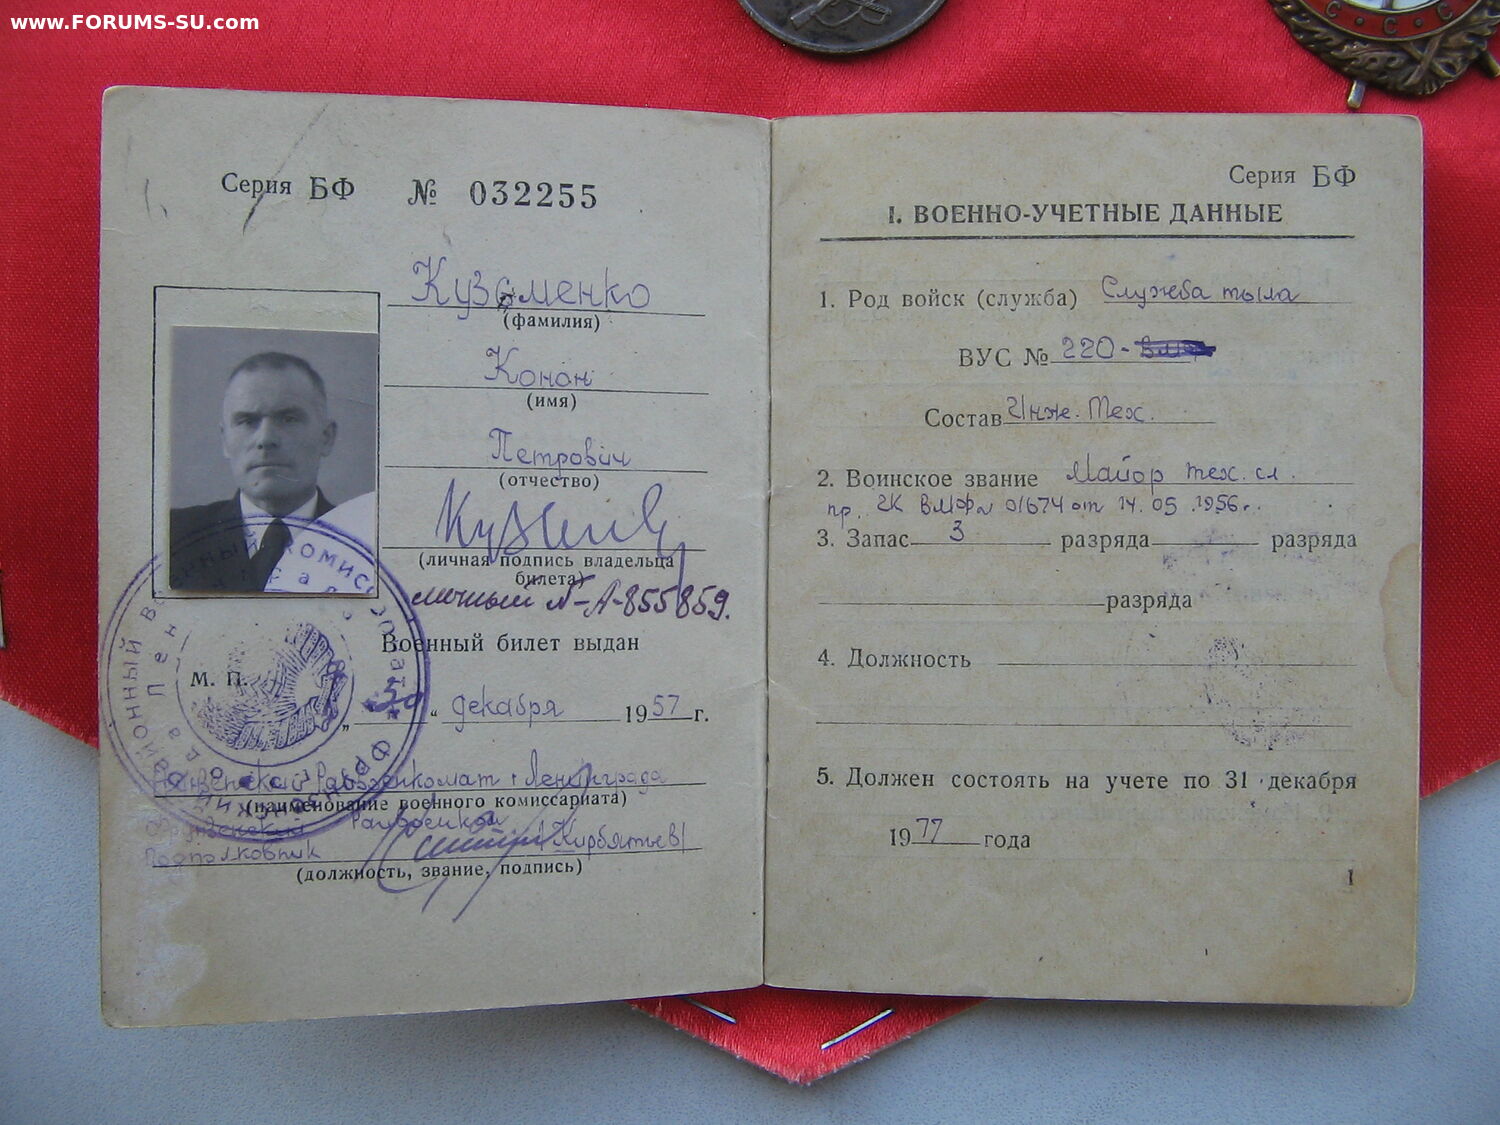 www.FORUMS-SU.com
С • С • С
Серия БФ № 032255
Кузьменко
(фамилия)
Конон
(имя)
Петрович
(отчество)
(личная подпись владельца
билета)
личный №-А-855859.
Военный билет выдан
М. П.
„ 30 “ декабря 1957 г.
Фрунзенский Райвоенкомат г. Ленинграда
(наименование военного комиссариата)
Фрунзенский Райвоенком
Подполковник
(должность, звание, подпись)
Серия БФ
I. ВОЕННО-УЧЕТНЫЕ ДАННЫЕ
1. Род войск (служба) Служба тыла
ВУС № 220-
Состав Инж. Тех.
2. Воинское звание Майор тех. сл.
пр. ГК ВМФ № 01674 от 14.05.1956г.
3. Запас 3 разряда разряда
разряда
4. Должность
5. Должен состоять на учете по 31 декабря
1977 года
1